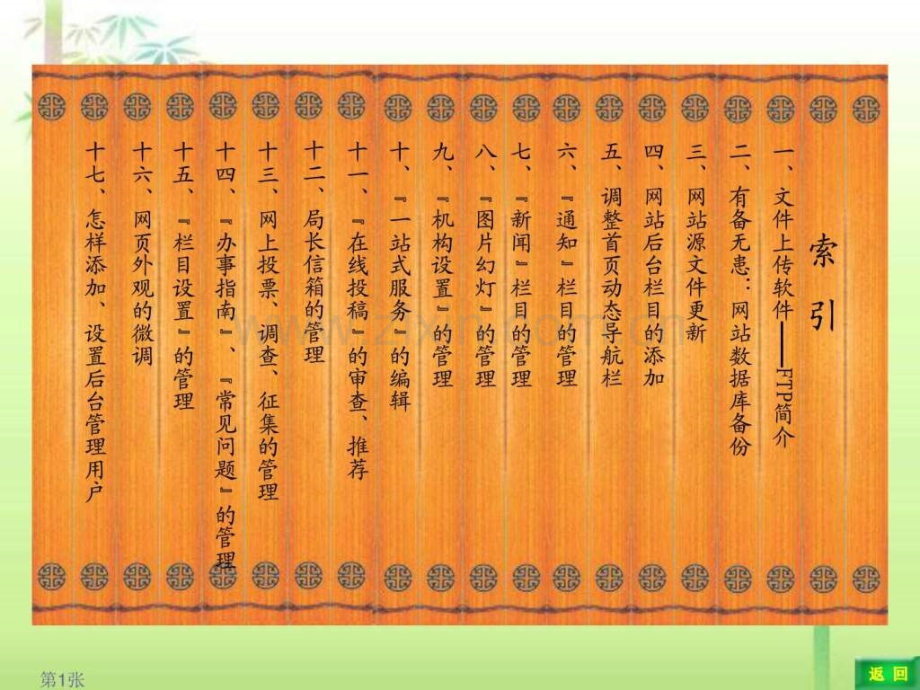 索引
一、文件上传软件——FTP简介
二、有备无患：网站数据库备份
三、网站源文件更新
四、网站后台栏目的添加
五、调整首页动态导航栏
六、『通知』栏目的管理
七、『新闻』栏目的管理
八、『图片幻灯』的管理
九、『机构设置』的管理
十、『一站式服务』的编辑
十一、『在线投稿』的审查、推荐
十二、局长信箱的管理
十三、网上投票、调查、征集的管理
十四、『办事指南』、『常见问题』的管理
十五、『栏目设置』的管理
十六、网页外观的微调
十七、怎样添加、设置后台管理用户
第1张
返回